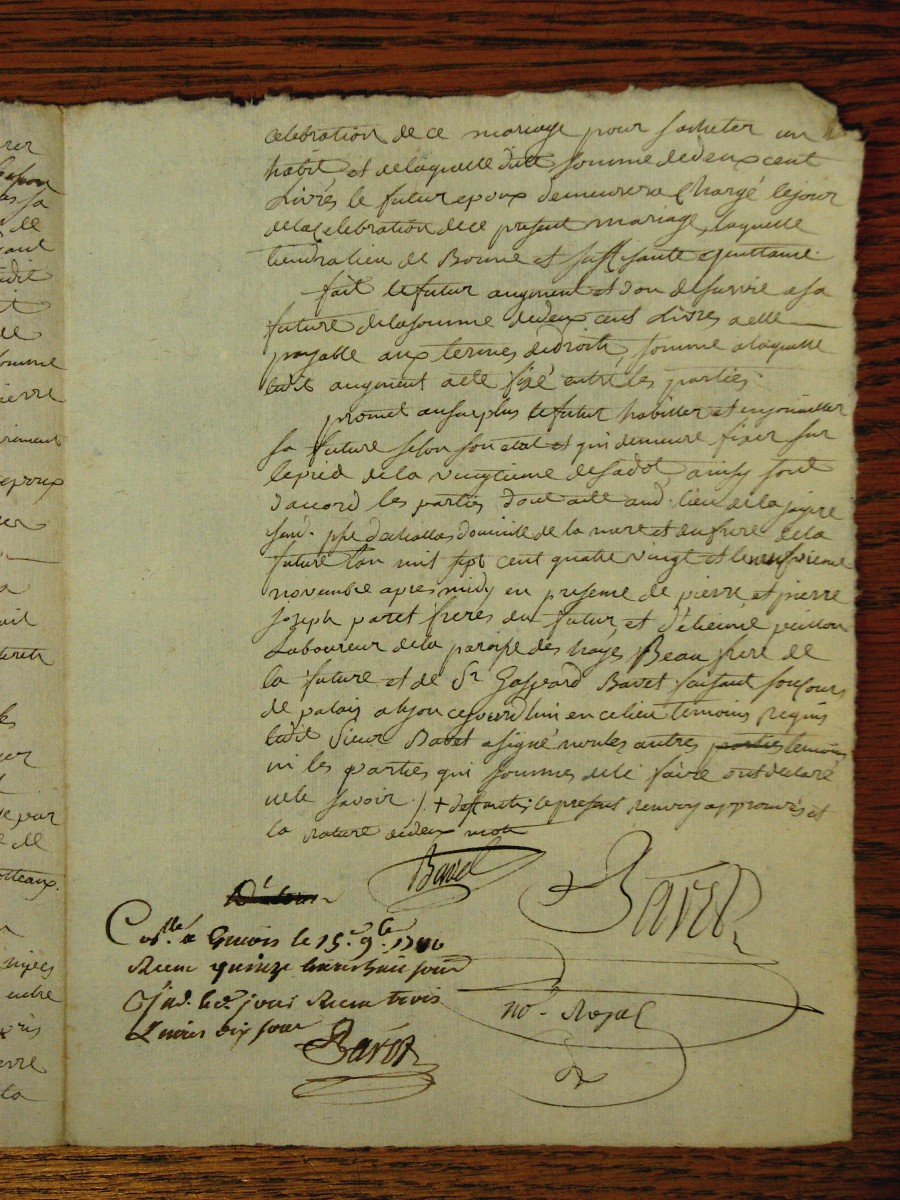 celebration de ce mariage pour sacheter un
habit et de laquelle ditte somme de deux cent
Livres le futur epoux demeurera Chargé le jour
de la Celebration de ce present mariage, laquelle
tiendra lieu de Bonne et suffisante quittance.
fait le futur augment et don de survie a sa
future de la somme de deux cent Livres a elle
payable aux termes de droits, somme a laquelle
ledit augment a ete fixé entre les parties.
promet au surplus le futur habiller et enjouailler
sa future selon son etat et qui demeure fixer sur
le pied de la vingtieme de sa dot, ainsy sont
d'accord les parties dont acte aud. lieu de la
sud. psse d'echallas domicile de la mere et du frere de la
future l'an mil sept cent quatre vingt et le
novembre apres midy en presence de pierre et pierre
joseph paret freres du futur, et d'etienne
Laboureur de la paroisse des hayes Beau frere de
la future et de Sr Gaspard Bavet faisant
de palais a lyon ce jourd'hui en ce lieu temoins requis
ledit Sieur Bavet a signé non les autres parties temoins
ni les parties qui sommes de le faire ont declaré
ne le savoir ./. + le present renvoy approuvés et
la rature de deux mots
Bavet
Bavet
Collé a Givors le 15e 9bre 1780
Recu quinze livres huit sous
led. jour Recu trois
Livres dix sous
Bavet
no. Royal